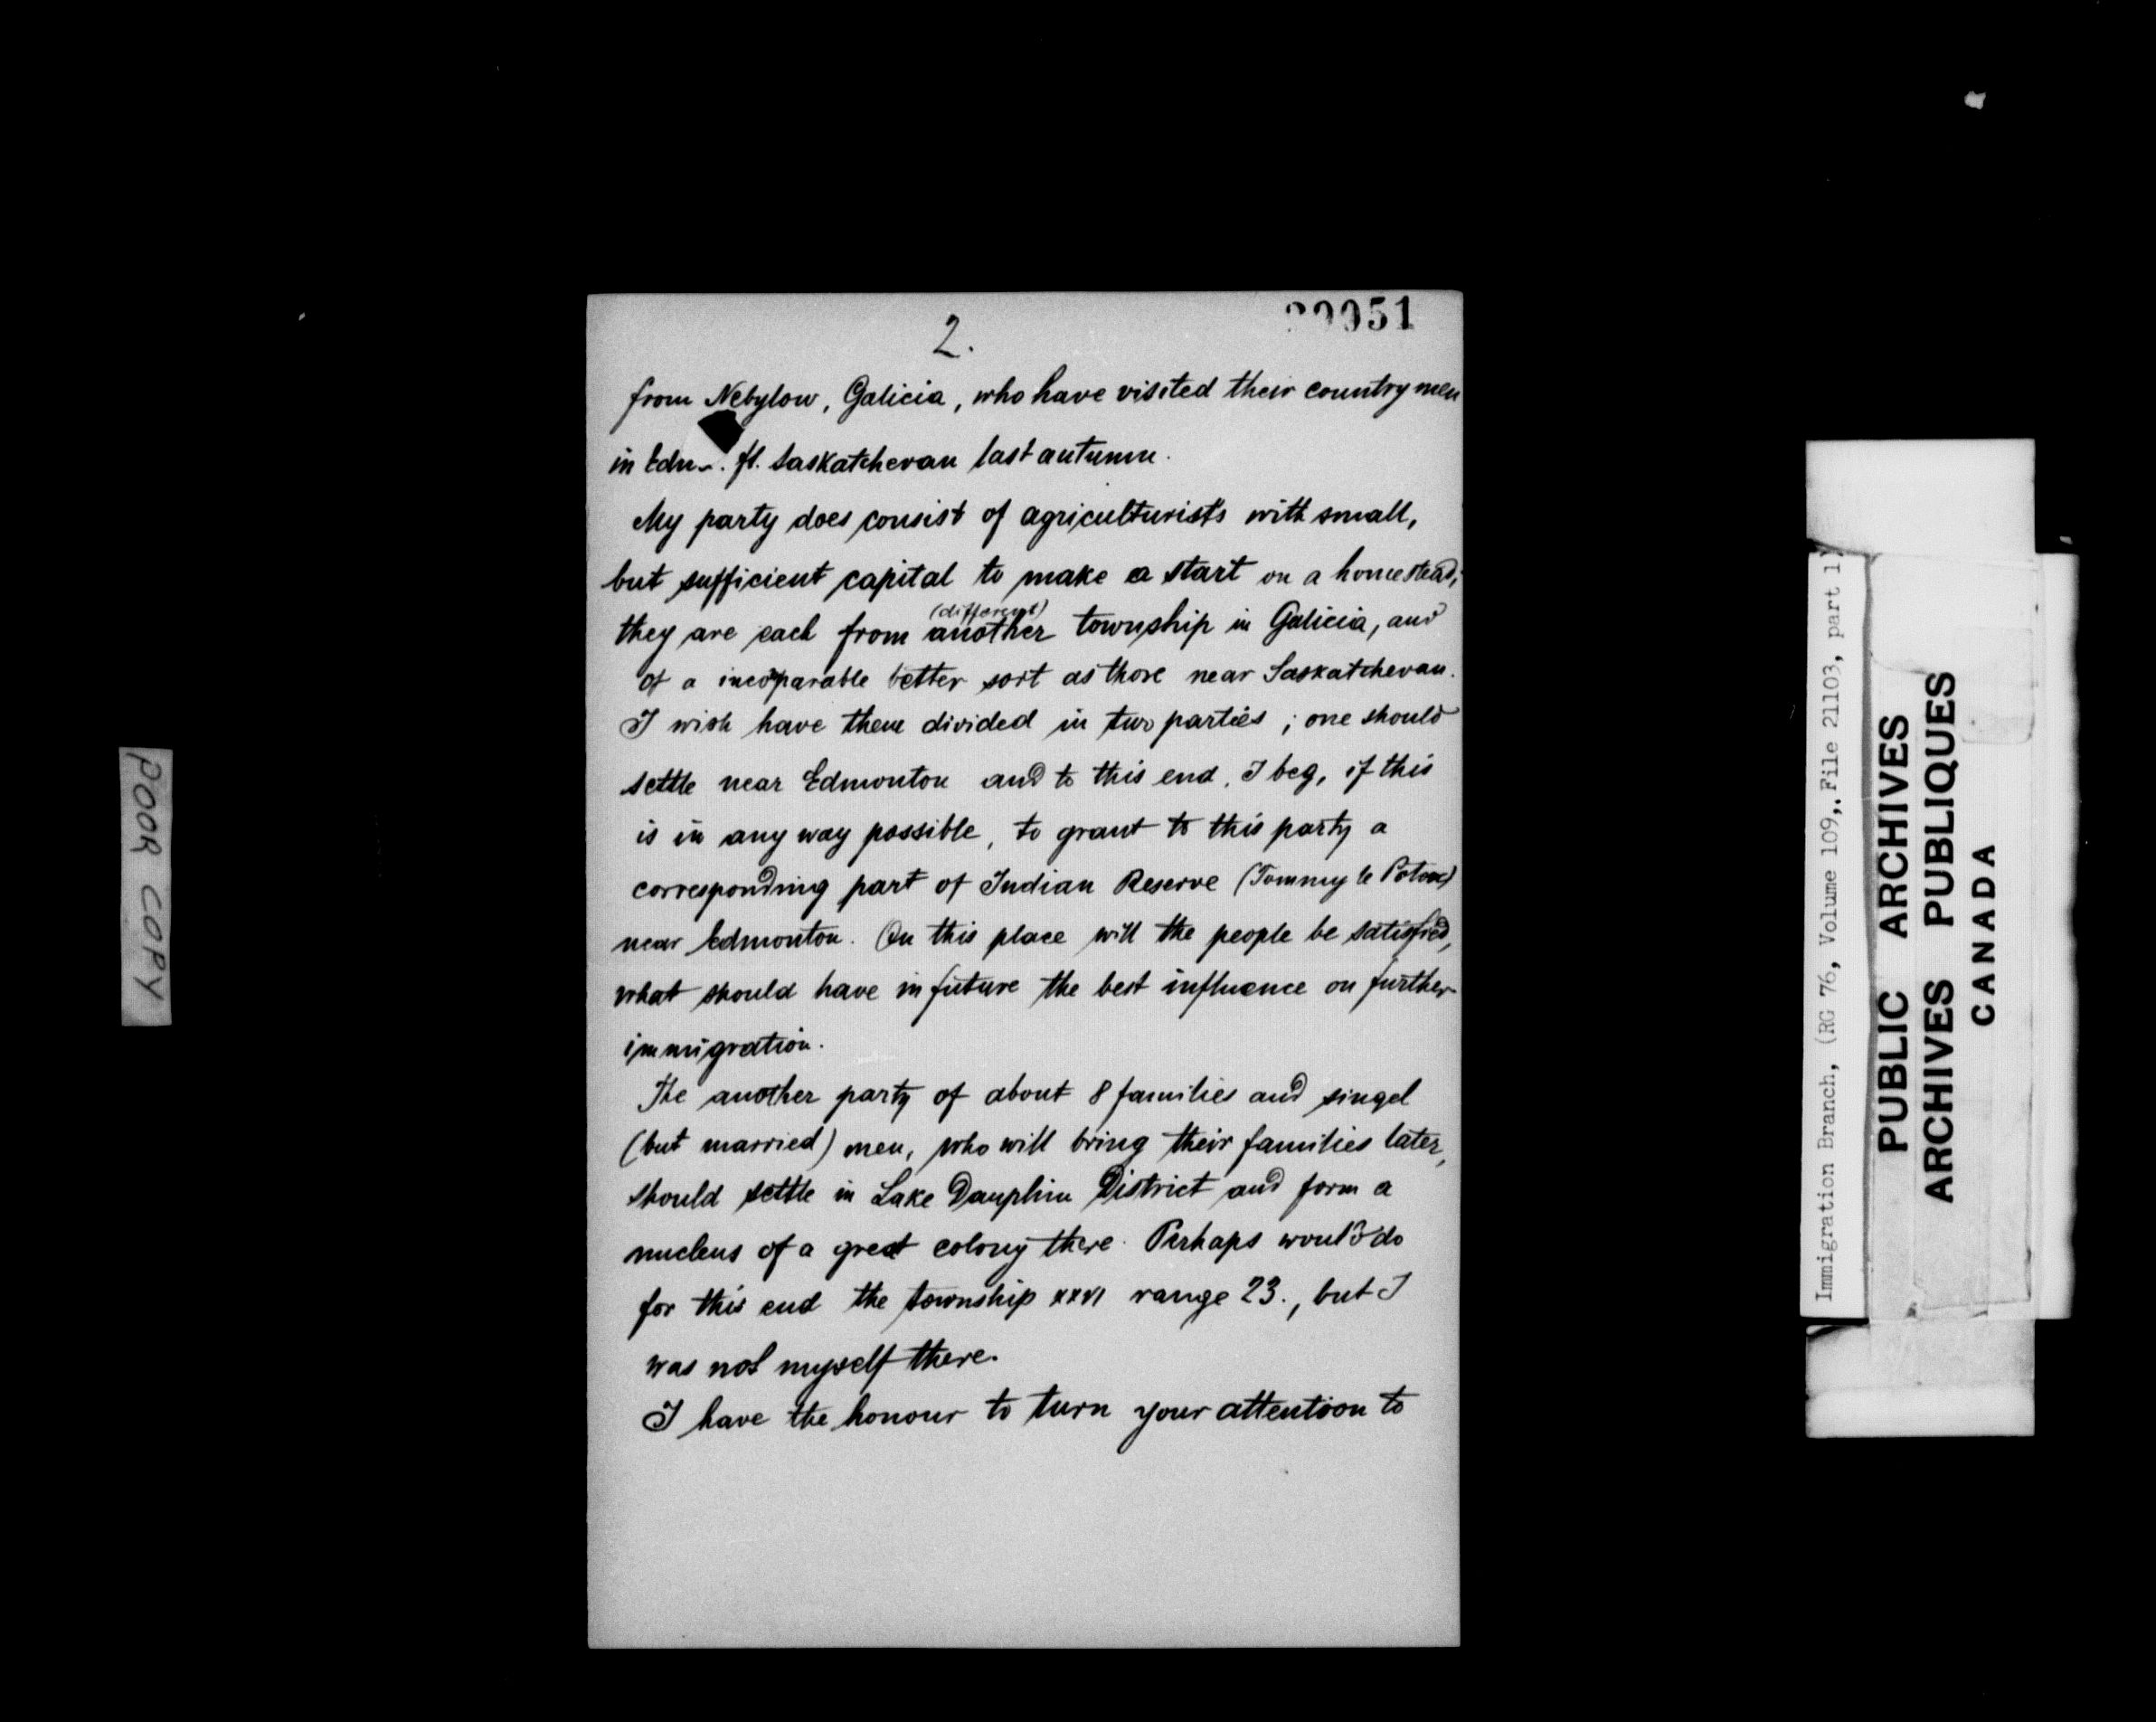 2.
from Nebylow, Galicia, who have visited their countrymen
in Edm. ft. Saskatchevan last autumn.
My party does consist of agriculturists with small,
but sufficient capital to make a start on a homestead;
(different)
they are each from another township in Galicia, and
of a incomparable better sort as those near Saskatchevan.
I wish have them divided in two parties; one should
settle near Edmonton and to this end, I beg, if this
is in any way possible, to grant to this party a
corresponding part of Indian Reserve (Tommy le
near Edmonton. On this place will the people be satisfied,
what should have in future the best influence on further
immigration.
The another party of about 8 families and singel
(but married) men, who will bring their families later,
should settle in Lake Dauphin District and form a
nucleus of a great colony there. Perhaps would do
for this end the township XXVI range 23., but I
was not myself there.
I have the honour to turn your attention to
POOR COPY
Immigration Branch, (RG 76, Volume 109,. File 21103, part 1)
PUBLIC ARCHIVES
ARCHIVES PUBLIQUES
CANADA